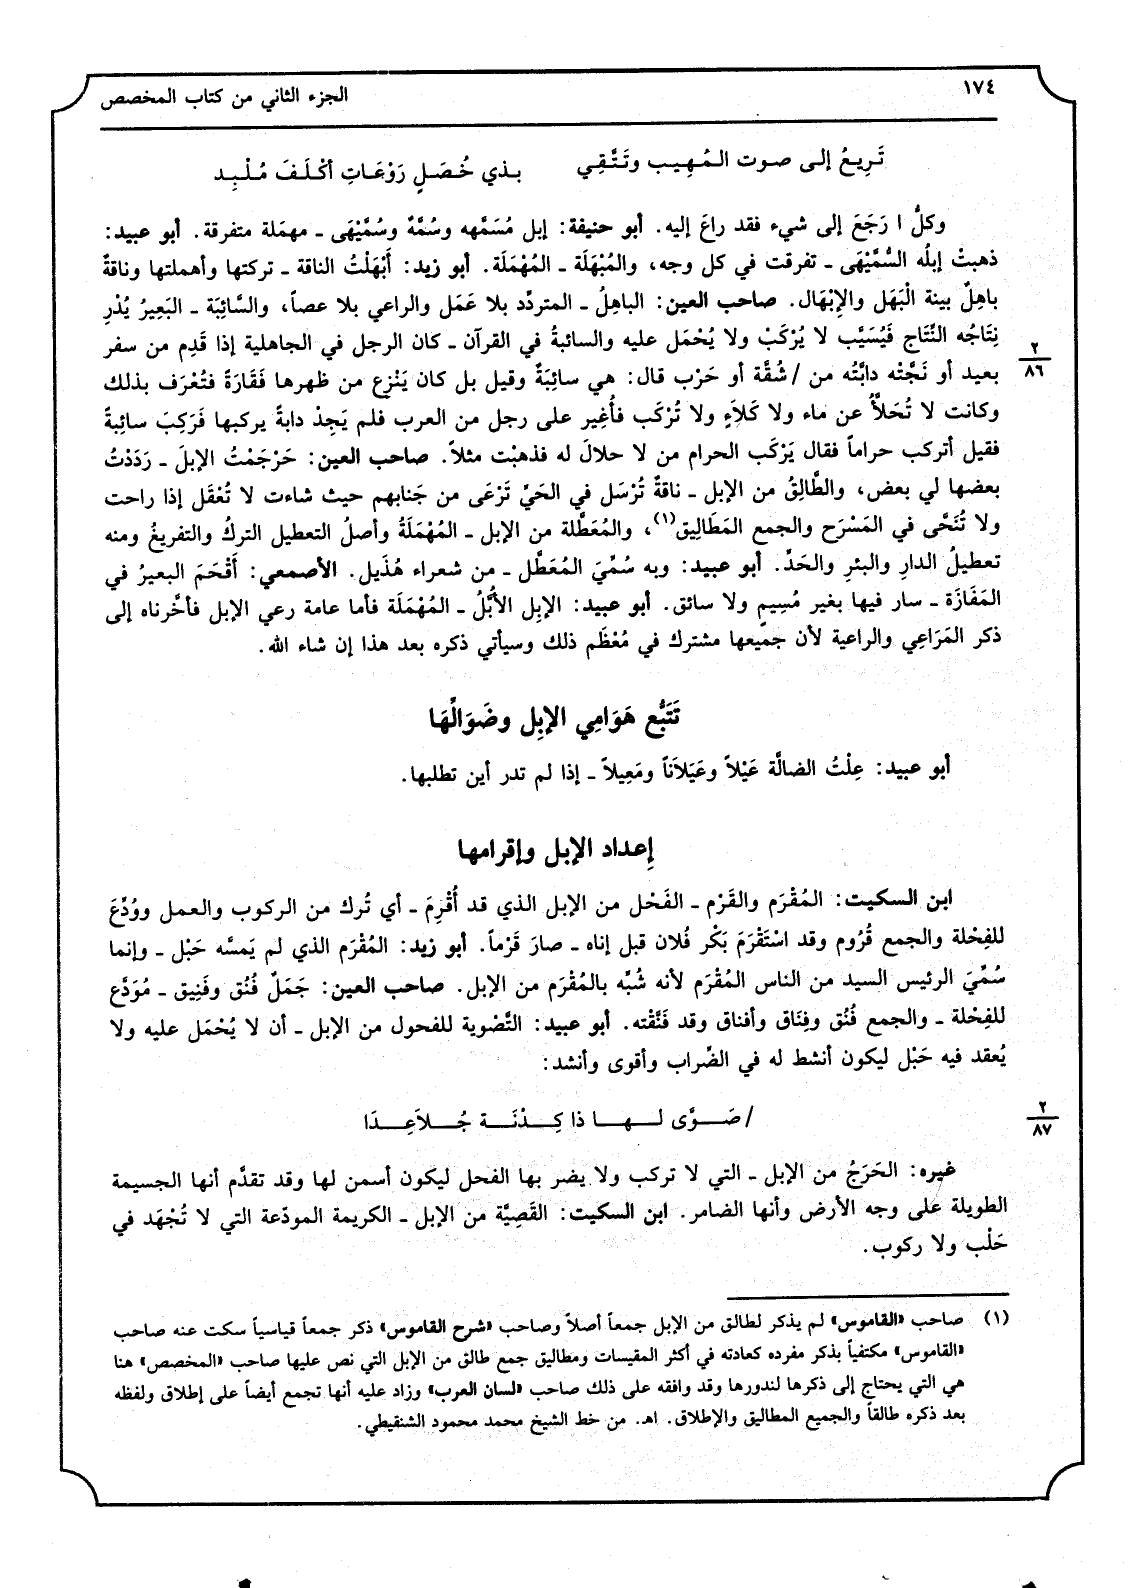 ١٧٤
الجزء الثاني من كتاب المخصص
تَرِيعُ إلى صوت المُهِيب وتَتَّقِي بذي خُصَلٍ رَوْعَاتِ أكْلَفَ مُلْبِد
وكلُّ ا رَجَعَ إلى شيء فقد راعَ إليه. أبو حنيفة: إبل مُسَمَّهه وسُمَّهٌ وسُمَّيْهَى ـ مهمَلة متفرقة. أبو عبيد:
ذهبتْ إبلُه السُّمَّيْهَى ـ تفرقت في كل وجه، والمُبْهَلَة ـ المُهْمَلَة. أبو زيد: أَبْهَلْتُ الناقة ـ تركتها وأهملتها وناقةٌ
باهِلٌ بينة الْبَهَل والإبْهَال. صاحب العين: الباهِلُ ـ المتردِّد بلا عَمَل والراعي بلا عصاً، والسَّائِبَة ـ البَعِيرُ يُدْرِ
نِتَاجُه النِّتَاج فَيُسَيَّب لا يُرْكَبْ ولا يُحْمَل عليه والسائبةُ في القرآن ـ كان الرجل في الجاهلية إذا قَدِم من سفر
٢
٨٦
بعيد أو نَجَّتْه دابَّتُه من / شُقَّة أو حَرْب قال: هي سائِبَةٌ وقيل بل كان يَنْزِع من ظهرها فَقَارَةً فتُعْرَف بذلك
وكانت لا تُحَلأُ عن ماء ولا كَلاَءٍ ولا تُرْكَب فأُغِير على رجل من العرب فلم يَجِدْ دابةً يركبها فَرَكِبَ سائِبةً
فقيل أتركب حراماً فقال يَرْكَب الحرام من لا حلالَ له فذهبتْ مثلاً. صاحب العين: حَرْجَمْتُ الإبلَ ـ رَدَدْتُ
بعضها لي بعض، والطَّالِقُ من الإبل ـ ناقةٌ تُرْسَل في الحَيِّ تَرْعَى من جَنابهم حيث شاءت لا تُعْقَل إذا راحت
ولا تُنَحَّى في المَسْرَح والجمع المَطَالِيق(١)، والمُعَطَّلة من الإبل ـ المُهْمَلَةُ وأصلُ التعطيل التركُ والتفريغُ ومنه
تعطيلُ الدارِ والبئرِ والحَدِّ. أبو عبيد: وبه سُمِّيَ المُعَطَّل ـ من شعراء هُذَيل. الأصمعي: أَقْحَمَ البعيرُ في
المَفَازَة ـ سار فيها بغير مُسِيمٍ ولا سائق. أبو عبيد: الإبِل الأُبَّلُ ـ المُهْمَلَة فأما عامة رعي الإبل فأخَّرناه إلى
ذكر المَرَاعِي والراعية لأن جميعها مشترك في مُعْظَم ذلك وسيأتي ذكره بعد هذا إن شاء الله.
تَتَبُّع هَوَامِي الإبِل وضَوَالِّهَا
أبو عبيد: عِلْتُ الضالَّة عَيْلاً وعَيَلاَناً ومَعِيلاً ـ إذا لم تدر أين تطلبها.
إعداد الإبل وإقرامها
ابن السكيت: المُقْرَم والقَرْم ـ الفَحْل من الإبل الذي قد أُقْرِمَ ـ أي تُرك من الركوب والعمل ووُدِّعَ
للفِحْلة والجمع قُرُوم وقد اسْتَقْرَمَ بَكْر فُلان قبل إناه ـ صارَ قَرْماً. أبو زيد: المُقْرَم الذي لم يَمسَّه حَبْل ـ وإنما
سُمِّيَ الرئيس السيد من الناس المُقْرَم لأنه شُبِّه بالمُقْرَم من الإبل. صاحب العين: جَمَلٌ فُنُق وفَنِيق ـ مُوَدَّع
للفِحْلة ـ والجمع فُنُق وفِنَاق وأفناق وقد فَنَّقْته. أبو عبيد: التَّصْوية للفحول من الإبل ـ أن لا يُحْمَل عليه ولا
يُعقد فيه حَبْل ليكون أنشط له في الضِّراب وأقوى وأنشد:
٢
٨٧
/ صَوَّى لها ذا كِدْنَة جُلاَعِدَا
غيره: الحَرَجُ من الإبل ـ التي لا تركب ولا يضر بها الفحل ليكون أسمن لها وقد تقدَّم أنها الجسيمة
الطويلة على وجه الأرض وأنها الضامر. ابن السكيت: القَصِيَّة من الإبل ـ الكريمة المودَعة التي لا تُجْهَد في
حَلْب ولا ركوب.
(١) صاحب «القاموس» لم يذكر لطالق من الإبل جمعاً أصلاً وصاحب «شرح القاموس» ذكر جمعاً قياسياً سكت عنه صاحب
«القاموس» مكتفياً بذكر مفرده كعادته في أكثر المقيسات ومطاليق جمع طالق من الإبل التي نص عليها صاحب «المخصص» هنا
هي التي يحتاج إلى ذكرها لندورها وقد وافقه على ذلك صاحب «لسان العرب» وزاد عليه أنها تجمع أيضاً على إطلاق ولفظه
بعد ذكره طالقاً والجميع المطاليق والإطلاق. اهـ. من خط الشيخ محمد محمود الشنقيطي.